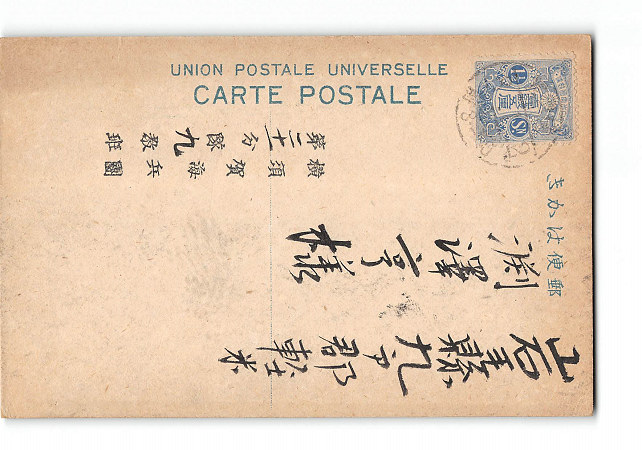 UNION POSTALE UNIVERSELLE
CARTE POSTALE
郵便はかき
岩手縣九戸郡軽米
渕澤亨様
横須賀海兵團
第二十一分隊九教班
1½
Sn